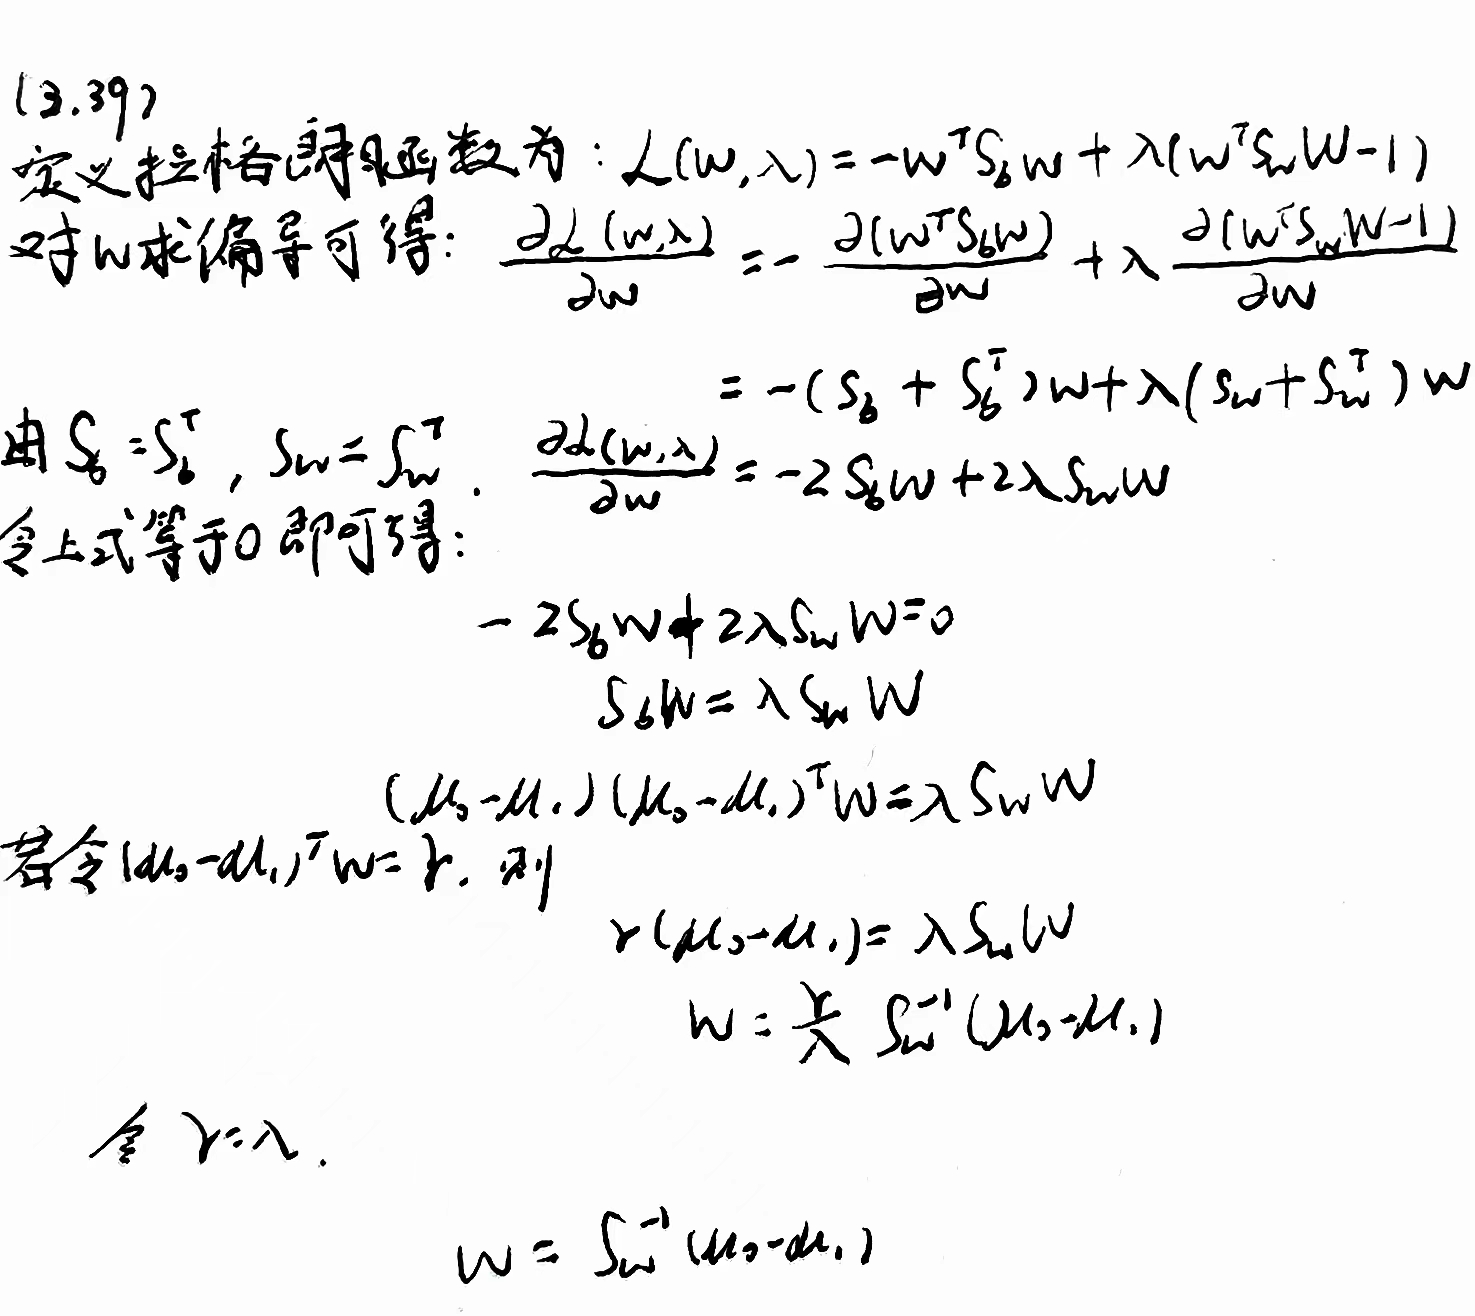 (3.39)
定义拉格朗日函数为: L(w,λ) = -wᵀS_b w + λ(wᵀS_w w - 1)
对w求偏导可得: ∂L(w,λ)/∂w = - ∂(wᵀS_b w)/∂w + λ ∂(wᵀS_w w - 1)/∂w
= -(S_b + S_bᵀ)w + λ(S_w + S_wᵀ)w
由 S_b = S_bᵀ, S_w = S_wᵀ. ∂L(w,λ)/∂w = -2S_b w + 2λS_w w
令上式等于0即可得:
-2S_b w + 2λS_w w = 0
S_b w = λS_w w
(μ₀-μ₁)(μ₀-μ₁)ᵀw = λS_w w
若令(μ₀-μ₁)ᵀw = γ. 则
γ(μ₀-μ₁) = λS_w w
w = γ/λ S_w⁻¹(μ₀-μ₁)
令 γ=λ.
w = S_w⁻¹(μ₀-μ₁)